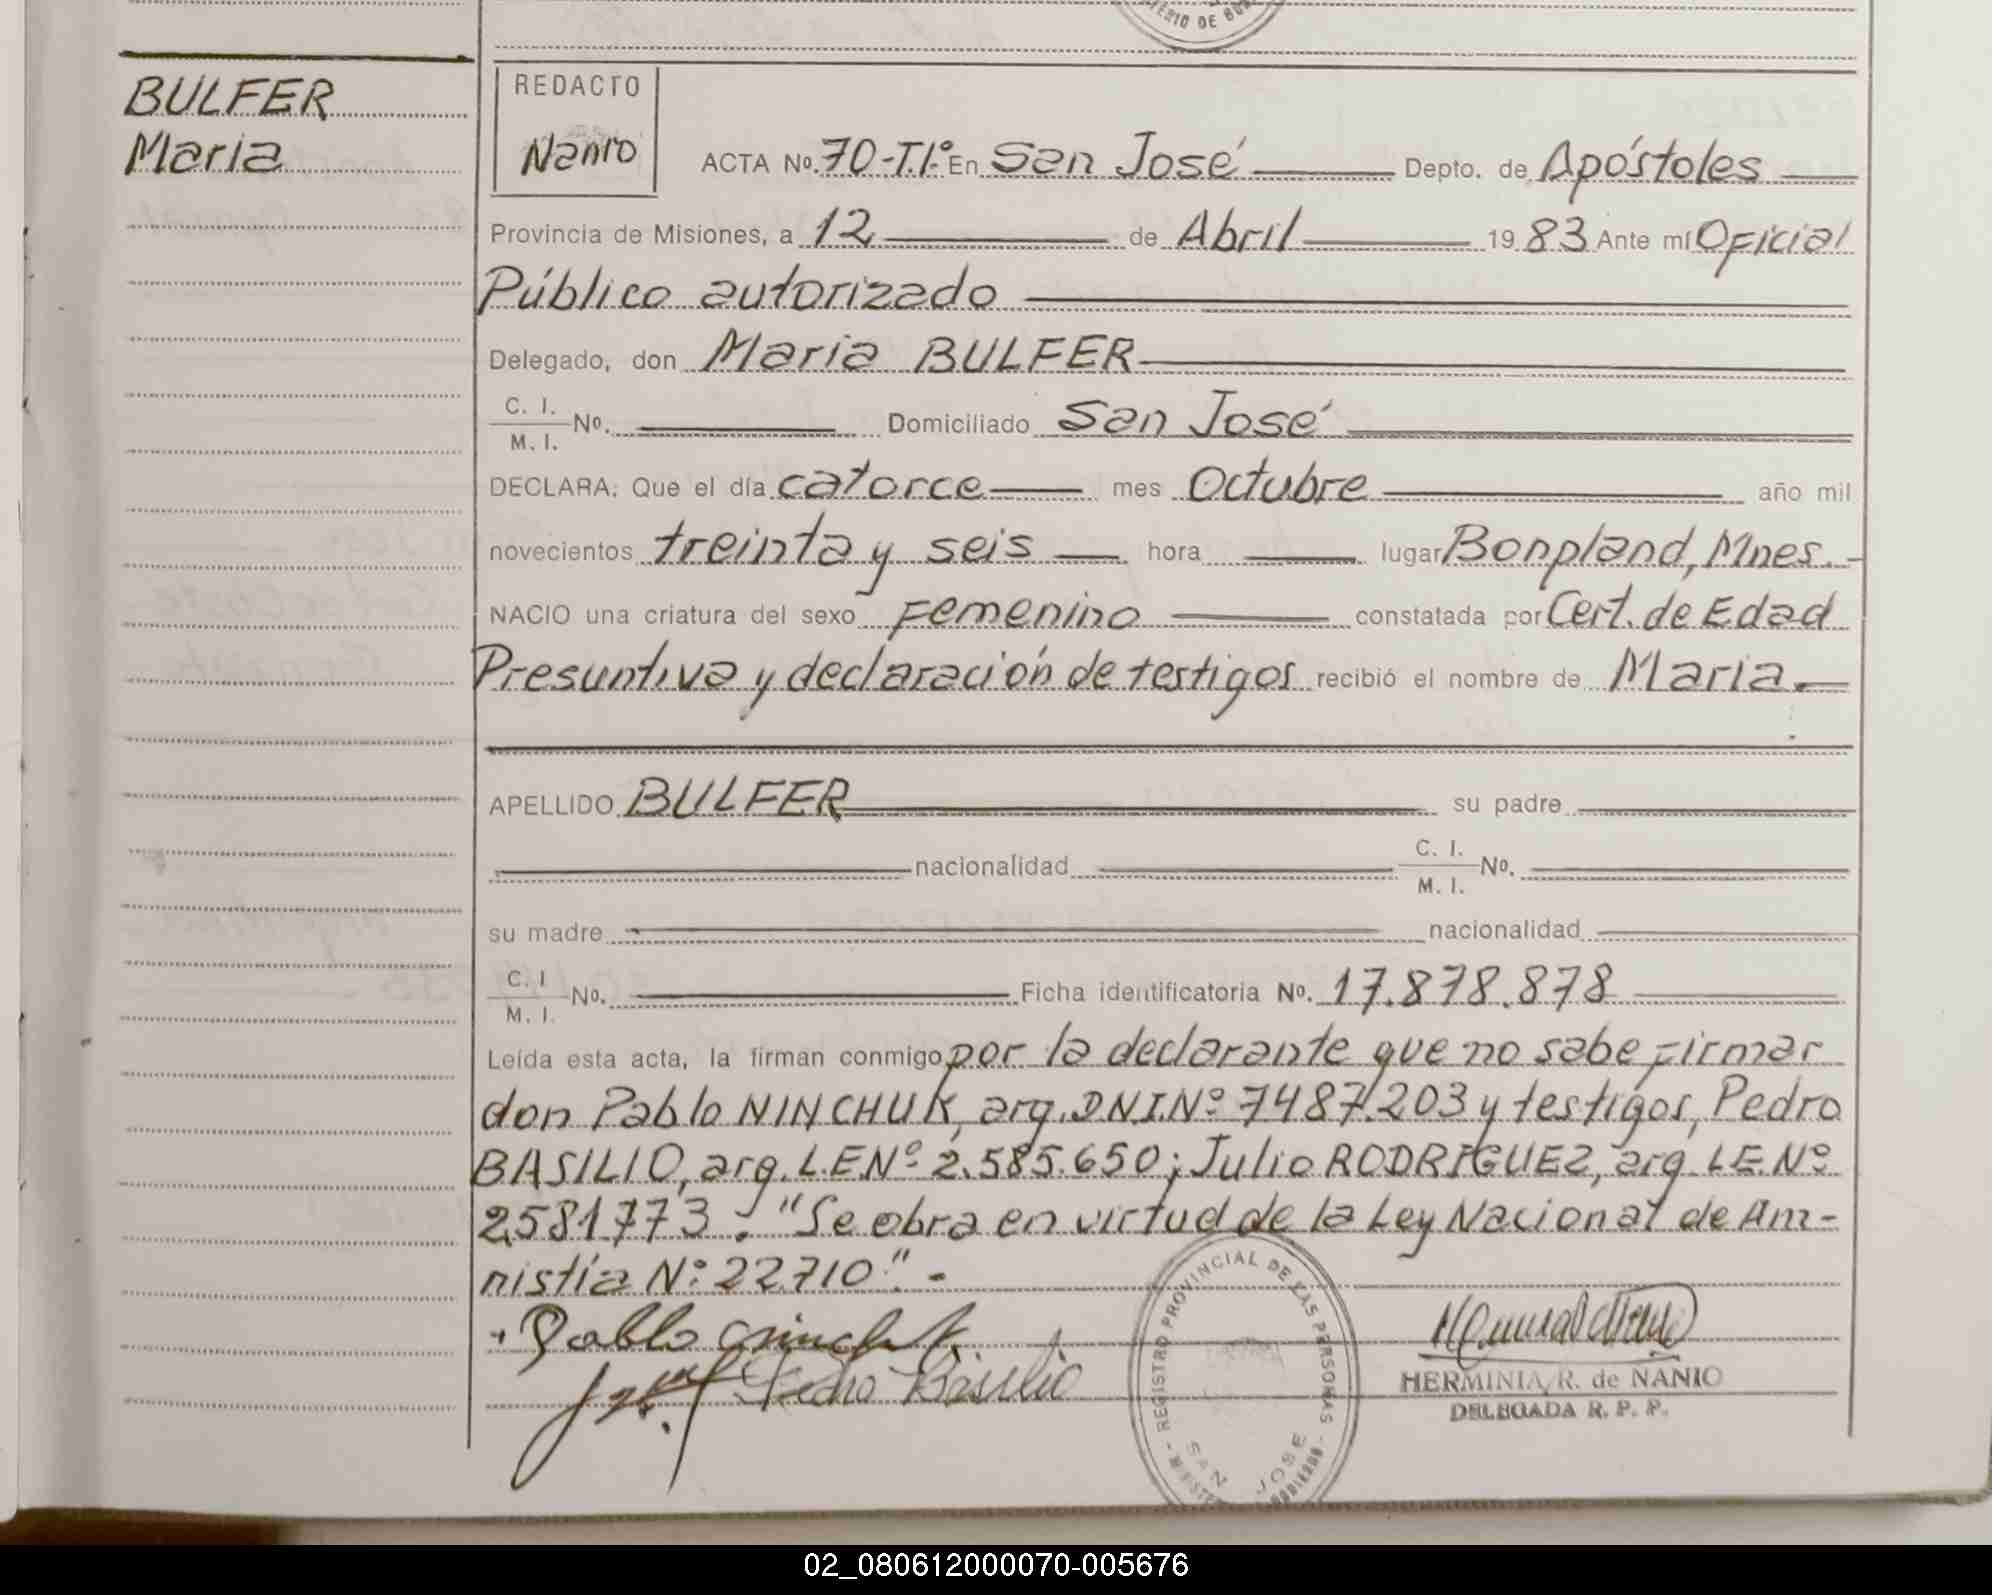 TERIO DE GOB
BULFER
Maria
REDACTO
Nanio
ACTA No. 70-T.1º En San José Depto. de Apóstoles
Provincia de Misiones, a 12 de Abril 1983 Ante mí Oficial
Público autorizado
Delegado, don Maria BULFER
C. I. / M. I. No. Domiciliado San José
DECLARA: Que el día catorce mes Octubre año mil
novecientos treinta y seis hora lugar Bonpland, Mnes.-
NACIO una criatura del sexo Femenino constatada por Cert. de Edad
Presuntiva y declaración de testigos recibió el nombre de Maria.
APELLIDO BULFER su padre
nacionalidad C. I. / M. I. No.
su madre nacionalidad
C. I / M. I. No. Ficha identificatoria No. 17.878.878
Leída esta acta, la firman conmigo por la declarante que no sabe firmar
don Pablo NINCHUK, arg. D.N.I.Nº 7487.203 y testigos, Pedro
BASILIO, arg. L.E.Nº 2.585.650; Julio RODRIGUEZ, arg. L.E.Nº
2581773. "Se obra en virtud de la Ley Nacional de Am-
nistía Nº 22.710".-
Pablo Ninchuk
Pedro Basilio
REGISTRO PROVINCIAL DE LAS PERSONAS
SAN JOSE
HERMINIA R. de NANIO
DELEGADA R. P. P.
02_080612000070-005676